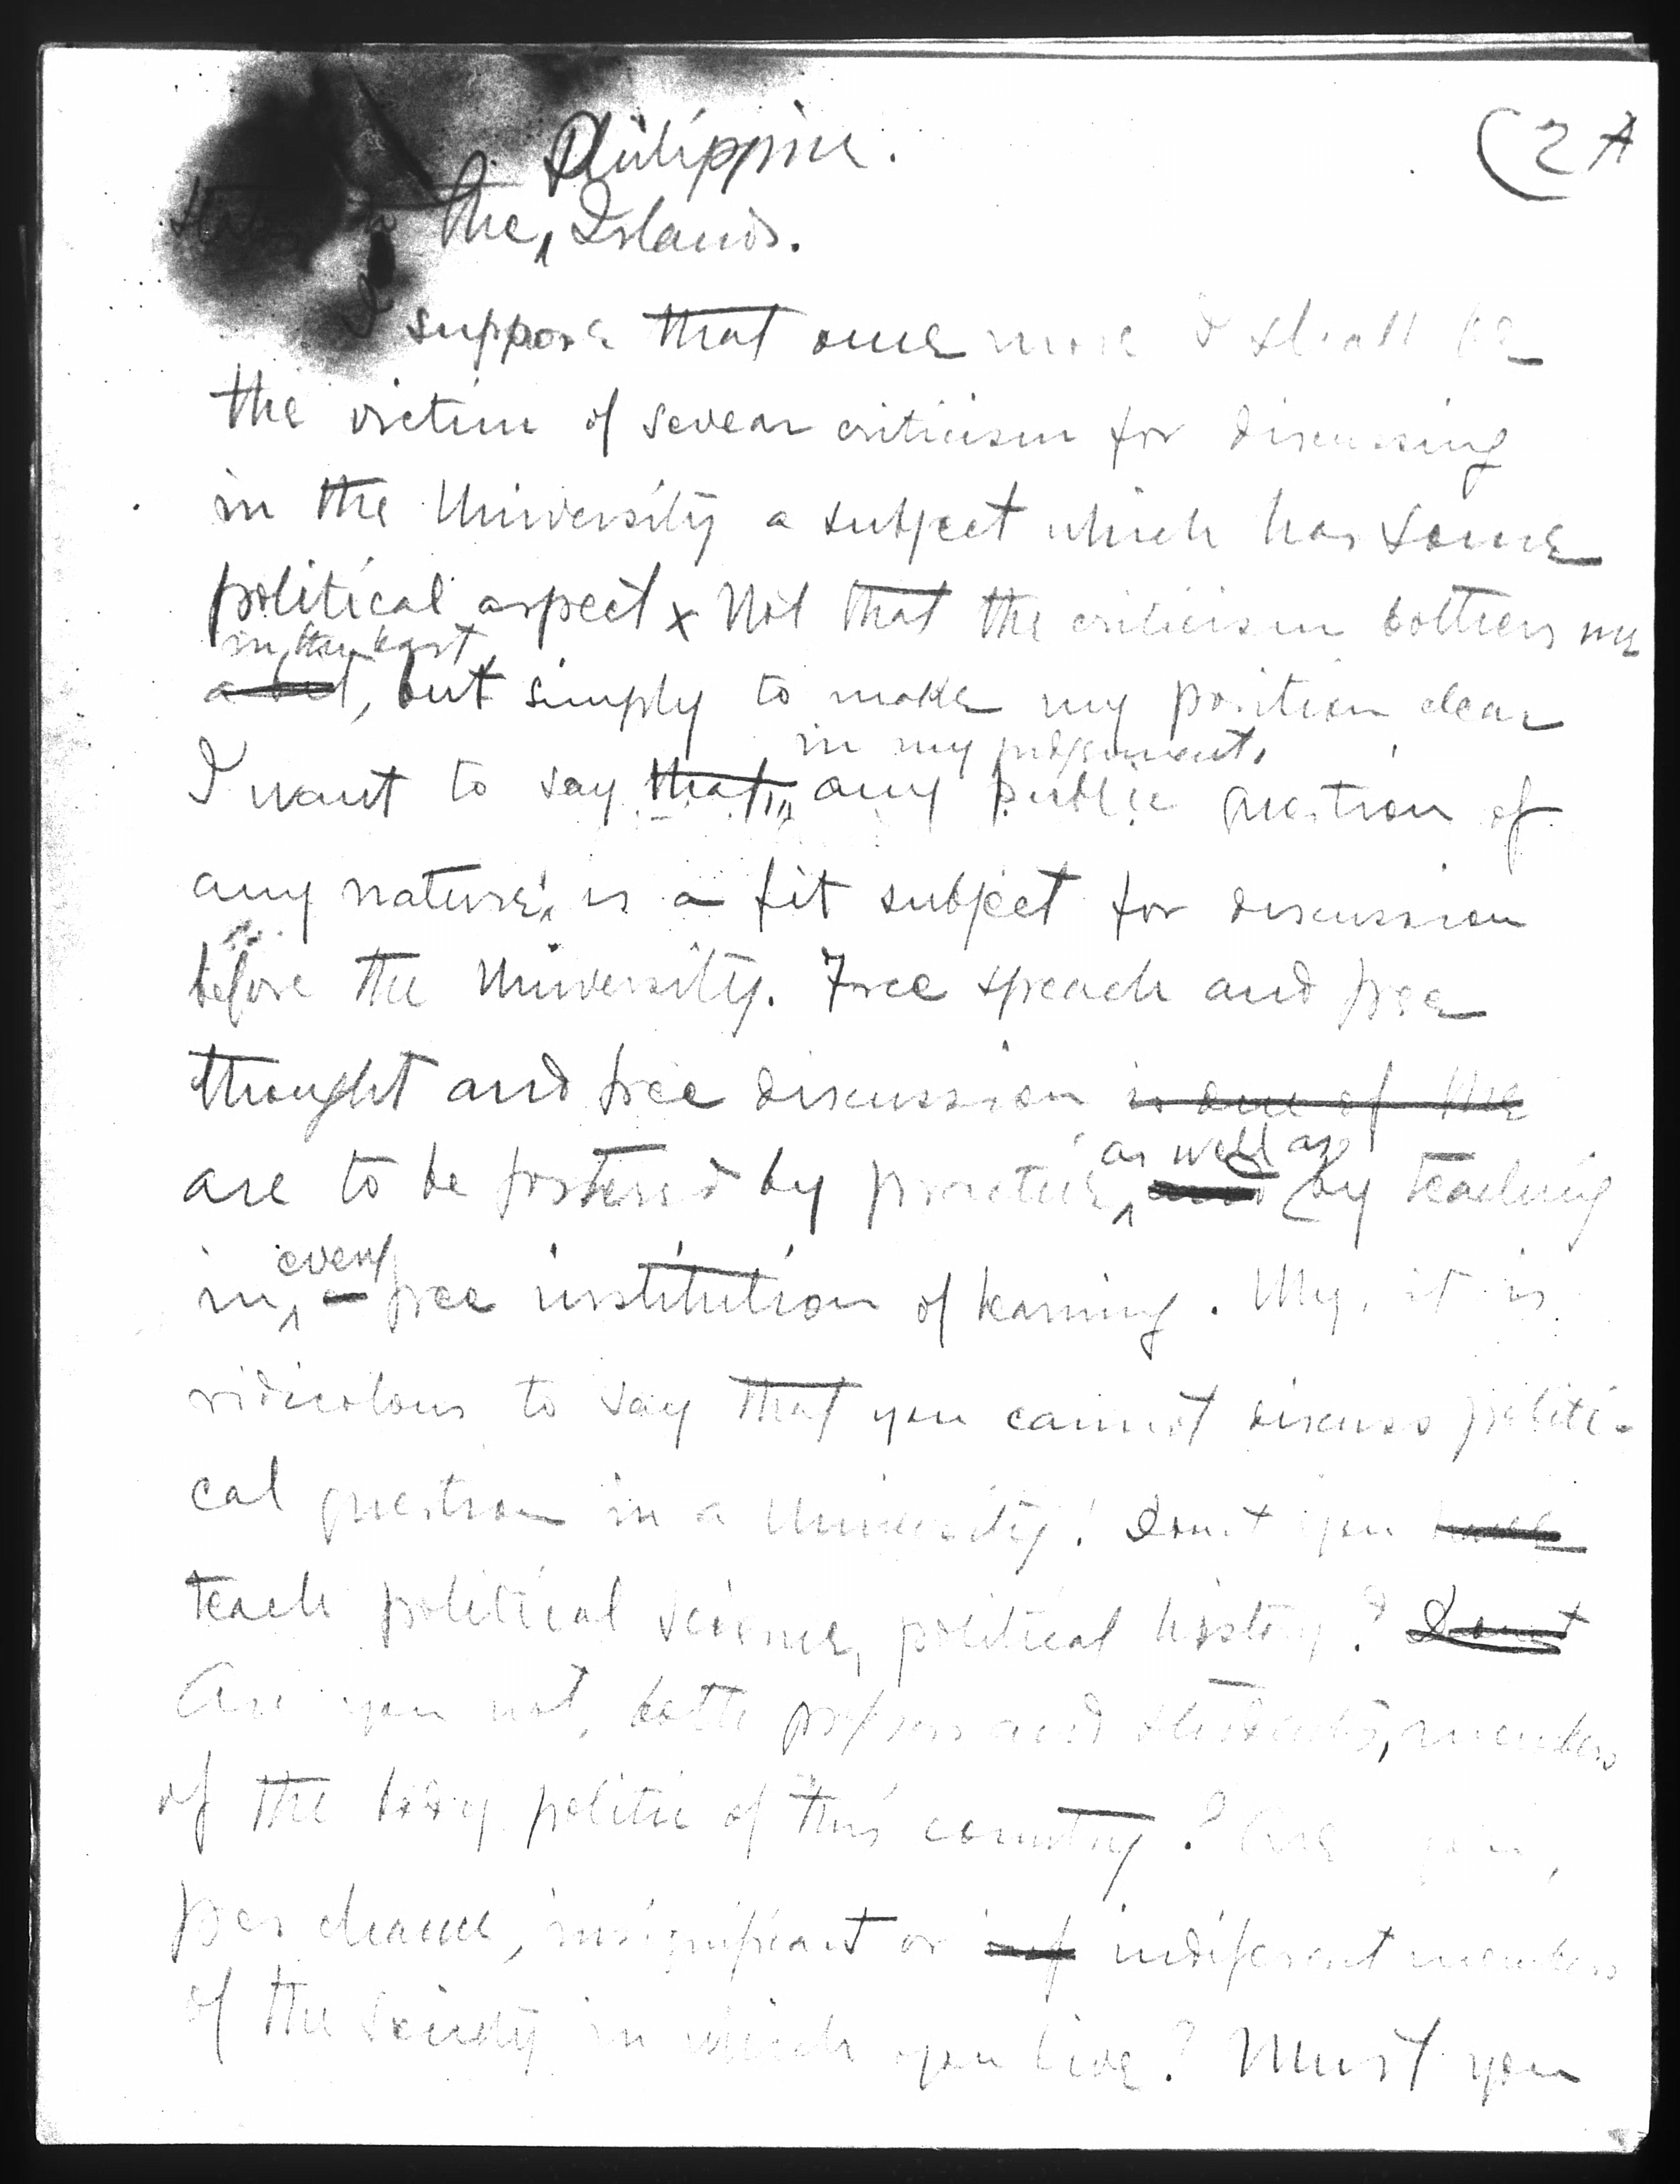 (2A
Philippine.
States in the Islands.
I suppose that once more I shall be
the victim of sevear criticism for discussing
in the University a subject which has some
political aspect x Not that the criticism bothers me
in the least
a bit, but simply to make my position clear
in my judgement,
I want to say that any public question of
any nature, is a fit subject for discussion
before the University. Free speach and free
thought and free discussion is one of the
as well as
are to be fostered by practice and by teaching
every
in a free institution of learning. Why, it is
ridiculous to say that you cannot discuss politi-
cal question in a University! Don't you have
teach political science, political history? Don't
Are you not, both professors and students, members
of the body politic of this country? Are you,
per chance, insignificant or inf indiferent members
of the society in which you live? Must you